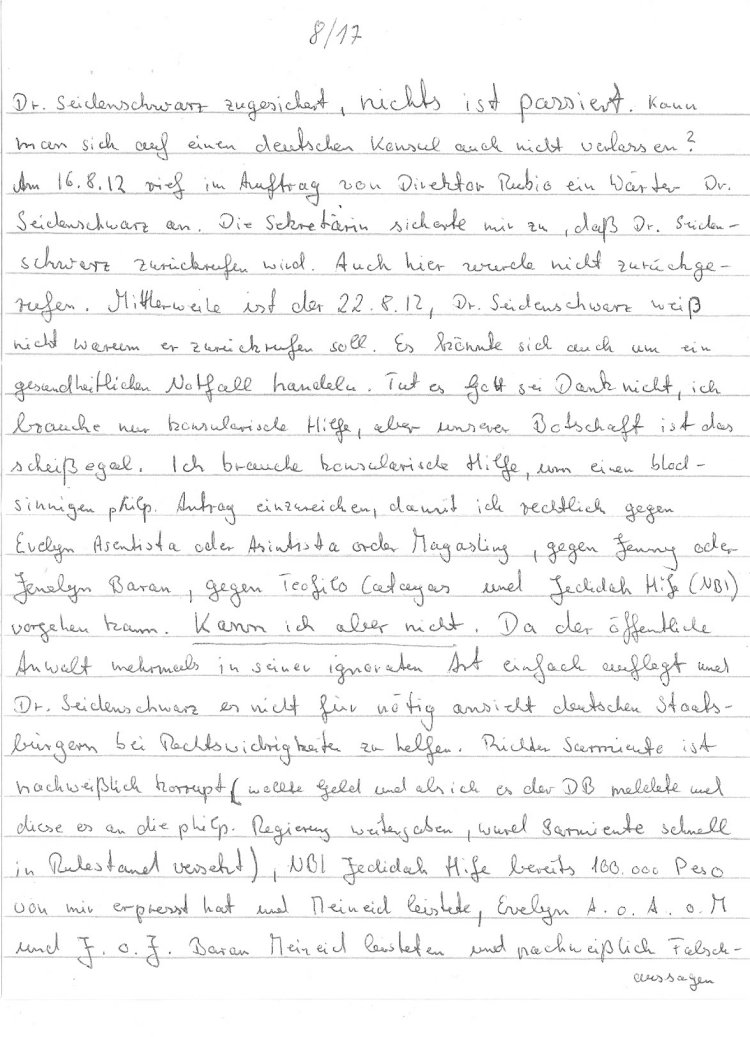 8/17
Dr. Seidenschwarz zugesichert, nichts ist passiert. Kann
man sich auf einen deutschen Konsul auch nicht verlassen?
Am 16.8.12 rief im Auftrag von Direktor Rubio ein Wärter Dr.
Seidenschwarz an. Die Sekretärin sicherte mir zu, daß Dr. Seiden-
schwarz zurückrufen wird. Auch hier wurde nicht zurückge-
rufen. Mittlerweile ist der 22.8.12, Dr. Seidenschwarz weiß
nicht warum er zurückrufen soll. Es könnte sich auch um ein
gesundheitlichen Notfall handeln. Tut es Gott sei Dank nicht, ich
brauche nur konsularische Hilfe, aber unserer Botschaft ist das
scheißegal. Ich brauche konsularische Hilfe, um einen blöd-
sinnigen philp. Antrag einzureichen, damit ich rechtlich gegen
Evelyn Asentista oder Asintista order Magasling, gegen Jenny oder
Jenelyn Baran, gegen Teofilo Catayas und Jedidah Hife (NBI)
vorgehen kann. Kann ich aber nicht. Da der öffentliche
Anwalt mehrmals in seiner ignoraten Art einfach auflegt und
Dr. Seidenschwarz es nicht für nötig ansicht deutschen Staats-
bürgern bei Rechtswidrigkeiten zu helfen. Richter Sarmiente ist
nachweißlich korrupt (wollte Geld und als ich es der DB meldete und
diese es an die philp. Regierung weitergaben, wurd Sarmiente schnell
in Ruhestand versetzt), NBI Jedidah Hife bereits 100.000 Peso
von mir erpresst hat und Meineid leistete, Evelyn A. o. A. o. M
und J. o. J. Baran Meineid leisteten und nachweißlich Falsch-
aussagen